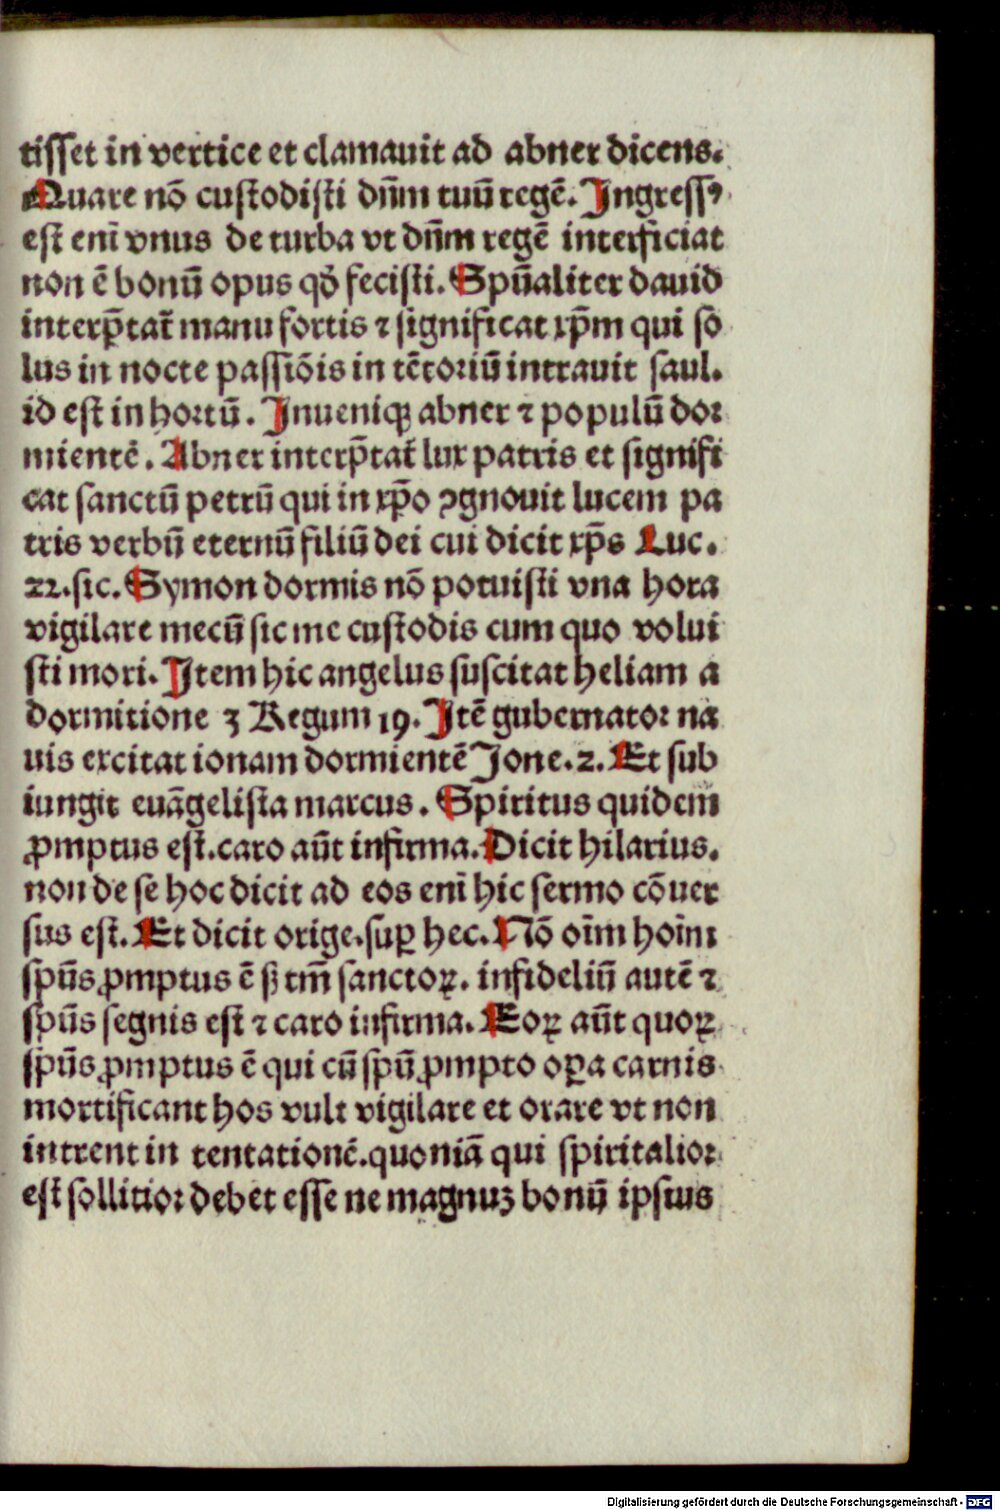 tisset in vertice et clamauit ad abner dicens.
Quare nō custodisti dn̄m tuū regē. Ingressꝰ
est enī vnus de turba vt dn̄m regē interficiat
non ē bonū opus qd̄ fecisti. Spūaliter dauid
interp̄tat̄ manu fortis ⁊ significat xp̄m qui so
lus in nocte passiōis in tētoriū intrauit saul.
id est in hortū. Inuenitqꝫ abner ⁊ populū dor
mientē. Abner interp̄tat̄ lux patris et signifi
cat sanctū petrū qui in xp̄o ꝯgnouit lucem pa
tris verbū eternū filiū dei cui dicit xp̄s Luc.
22. sic. Symon dormis nō potuisti vna hora
vigilare mecū sic me custodis cum quo volui
sti mori. Item hic angelus suscitat heliam a
dormitione 3 Regum 19. Itē gubernator na
uis excitat ionam dormientē Jone. 2. Et sub
iungit euāgelista marcus. Spiritus quidem
ꝓmptus est. caro aūt infirma. Dicit hilarius.
non de se hoc dicit ad eos enī hic sermo cōuer
sus est. Et dicit orige. suꝑ hec. Nō oīm hoīm
spūs ꝓmptus ē sꝫ tm̄ sanctoꝝ. infideliū autē ⁊
spūs segnis est ⁊ caro infirma. Eoꝝ aūt quoꝝ
spūs ꝓmptus ē qui cū spū ꝓmpto oꝑa carnis
mortificant hos vult vigilare et orare vt non
intrent in tentationē. quoniā qui spiritalior
est sollitior debet esse ne magnuꝫ bonū ipsius
Digitalisierung gefördert durch die Deutsche Forschungsgemeinschaft - DFG